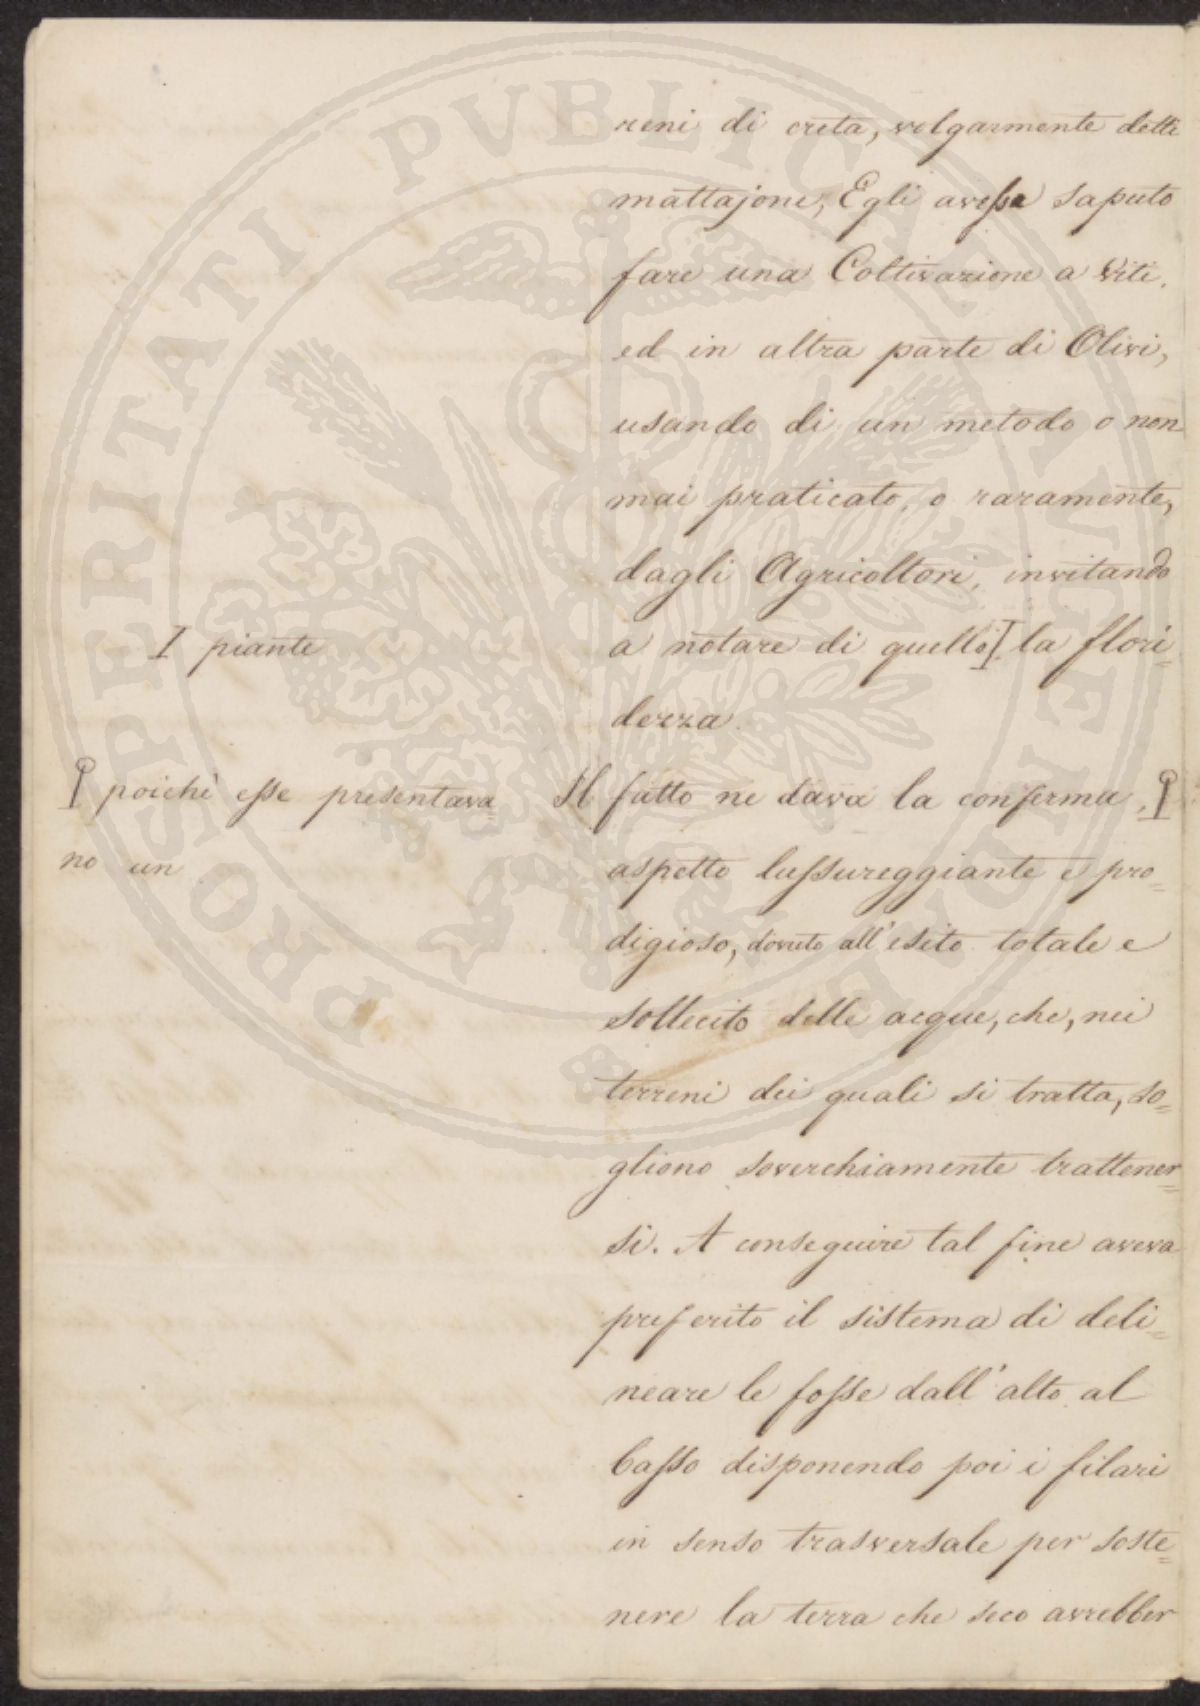 reni di creta, volgarmente detti
mattajone, Egli avesse saputo
fare una Coltivazione a Viti,
ed in altra parte di Olivi,
usando di un metodo o non
mai praticato, o raramente,
dagli Agricoltori, invitando
I piante
a notare di quelle I la flori-
dezza.
poichè esse presentava=
no un
Il fatto ne dava la conferma,
aspetto lussureggiante e pro=
digioso, dovuto all'esito totale e
sollecito delle acque, che, nei
terreni dei quali si tratta, so=
gliono soverchiamente trattener=
si. A conseguire tal fine aveva
preferito il sistema di deli=
neare le fosse dall'alto al
basso disponendo poi i filari
in senso trasversale per soste=
nere la terra che seco avrebber
PROSPERITATI PVBLICAE AVGENDAE